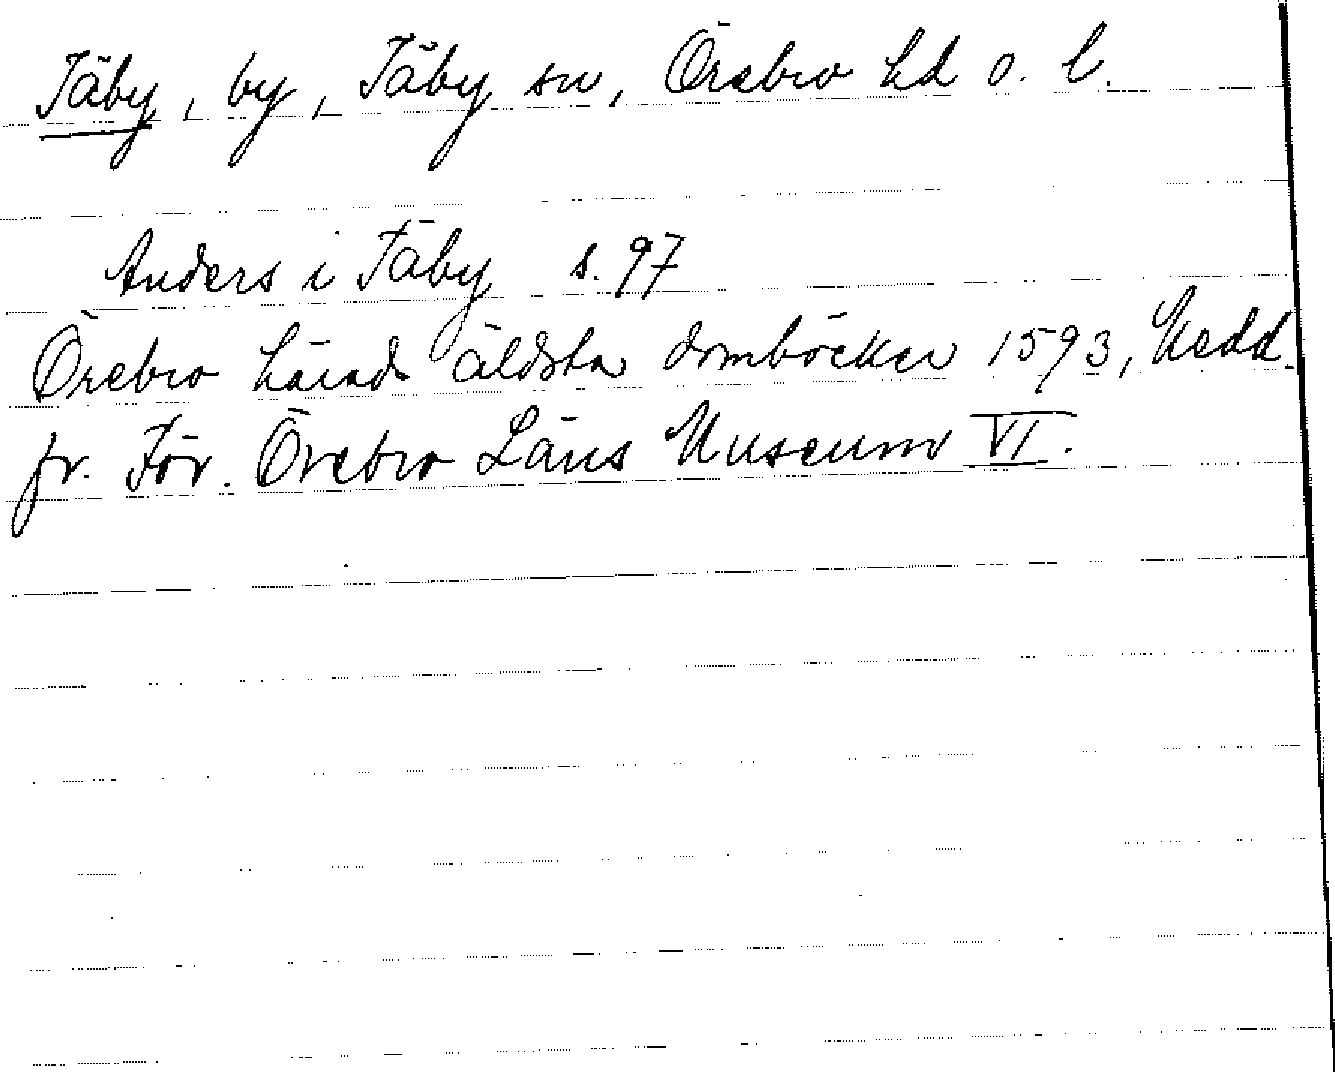 Täby, by, Täby sn, Örebro hd o. l.
Anders i Täby s. 97
Örebro härads äldsta domböcker 1593, Medd.
fr. För. Örebro Läns Museum VI.